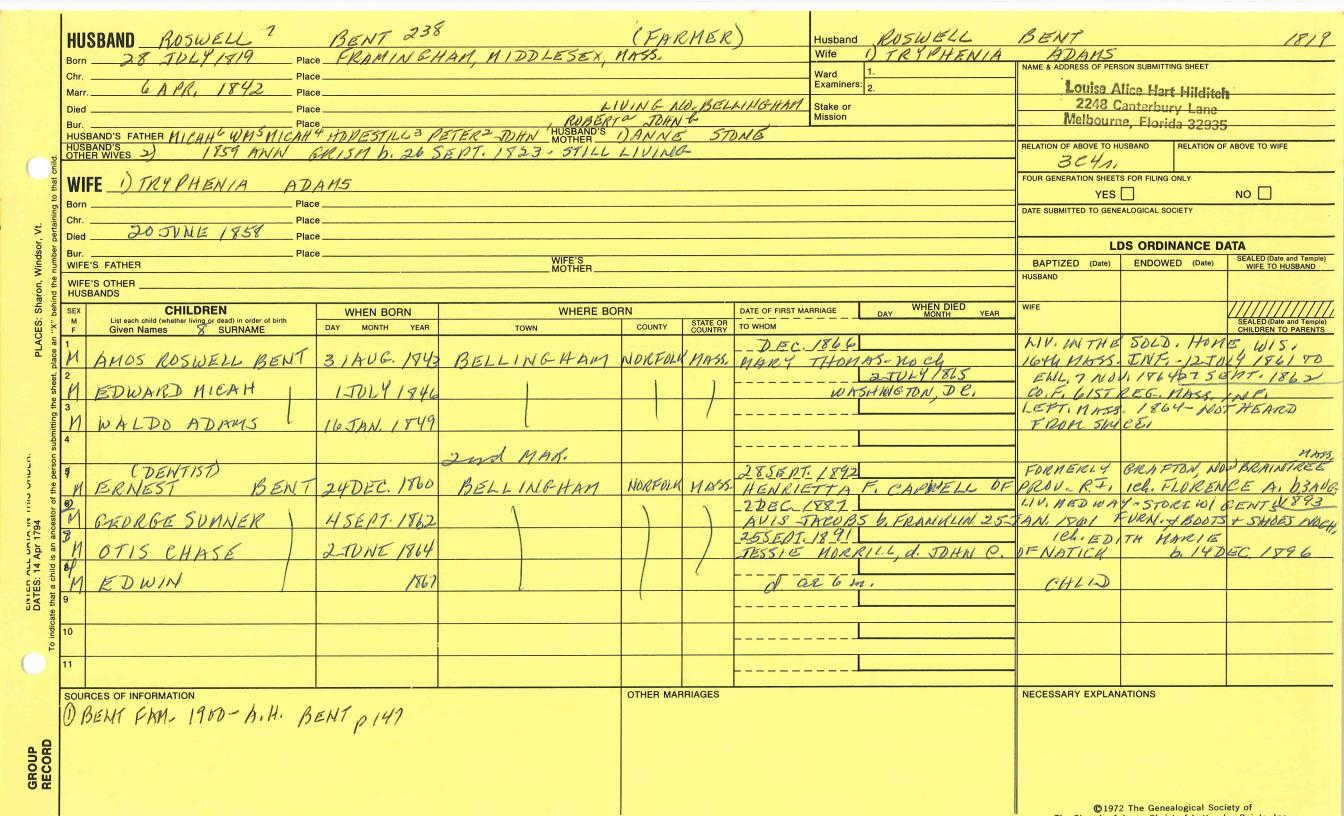 HUSBAND ROSWELL 7 BENT 238 (FARMER)
Born 28 JULY 1819 Place FRAMINGHAM, MIDDLESEX, MASS.
Chr. Place
Marr. 6 APR. 1842 Place
Died Place LIVING NO. BELLINGHAM
Bur. Place ROBERT JOHN
HUSBAND'S FATHER MICAH 6 WM 5 MICAH 4 HOPESTILL 3 PETER 2 JOHN 1 HUSBAND'S MOTHER 1) ANNE STONE
HUSBAND'S OTHER WIVES 2) 1859 ANN GRISM b. 26 SEPT. 1823 - STILL LIVING
Husband ROSWELL BENT 1819
Wife 1) TRYPHENIA ADAMS
Ward Examiners: 1. 2.
Stake or Mission
NAME & ADDRESS OF PERSON SUBMITTING SHEET
Louise Alice Hart Hilditch
2248 Canterbury Lane
Melbourne, Florida 32935
RELATION OF ABOVE TO HUSBAND RELATION OF ABOVE TO WIFE
3C4r.
FOUR GENERATION SHEETS FOR FILING ONLY
YES NO
DATE SUBMITTED TO GENEALOGICAL SOCIETY
WIFE 1) TRYPHENIA ADAMS
Born Place
Chr. Place
Died 20 JUNE 1858 Place
Bur. Place
WIFE'S FATHER WIFE'S MOTHER
WIFE'S OTHER HUSBANDS
LDS ORDINANCE DATA
BAPTIZED (Date) ENDOWED (Date) SEALED (Date and Temple) WIFE TO HUSBAND
HUSBAND
WIFE
SEALED (Date and Temple) CHILDREN TO PARENTS
SEX M F
CHILDREN
List each child (whether living or dead) in order of birth
Given Names 8 SURNAME
WHEN BORN
DAY MONTH YEAR
WHERE BORN
TOWN COUNTY STATE OR COUNTRY
DATE OF FIRST MARRIAGE
TO WHOM
WHEN DIED
DAY MONTH YEAR
1 DEC. 1866 LIV. IN THE SOLD. HOME WIS.
M AMOS ROSWELL BENT 31 AUG. 1843 BELLINGHAM NORFOLK MASS. MARY THOMAS - no ch 16th MASS. INF. - 12 JULY 1861 TO
2 2 JULY 1865 ENL. 7 NOV. 1864 27 SEPT. 1862
M EDWARD MICAH 1 JULY 1846 WASHINGTON, D.C. CO. F. 61ST REG. MASS. INF.
3 LEFT. MASS. 1864 - NOT HEARD
M WALDO ADAMS 16 JAN. 1849 FROM SINCE.
4
2nd MAR.
5 (DENTIST) 28 SEPT. 1892 FORMERLY GRAFTON, NOW BRAINTREE MASS.
M ERNEST BENT 24 DEC. 1860 BELLINGHAM NORFOLK MASS. HENRIETTA F. CAPWELL OF PROV. R.I. 1ch. FLORENCE A. b 3 AUG 1893
2 DEC. 1887 LIV. MEDWAY - STORE W/ GENTS
M GEORGE SUMNER 4 SEPT. 1862 AVIS JACOBS b. FRANKLIN 25 JAN. 1861 FURN. & BOOTS + SHOES no ch.
25 SEPT. 1891 1ch. EDITH MARIE
M OTIS CHASE 2 JUNE 1864 JESSIE MORRILL, d. JOHN C. OF NATICK b. 14 DEC. 1896
M EDWIN 1867 d ae 6 m. CHLID
9
10
11
SOURCES OF INFORMATION
① BENT FAM - 1900 - A.H. BENT p 147
OTHER MARRIAGES
NECESSARY EXPLANATIONS
©1972 The Genealogical Society of
PLACES: Sharon, Windsor, Vt.
DATES: 14 Apr 1794
To indicate that a child is an ancestor of the person submitting the sheet, place an "X" behind the number pertaining to that child.
GROUP RECORD